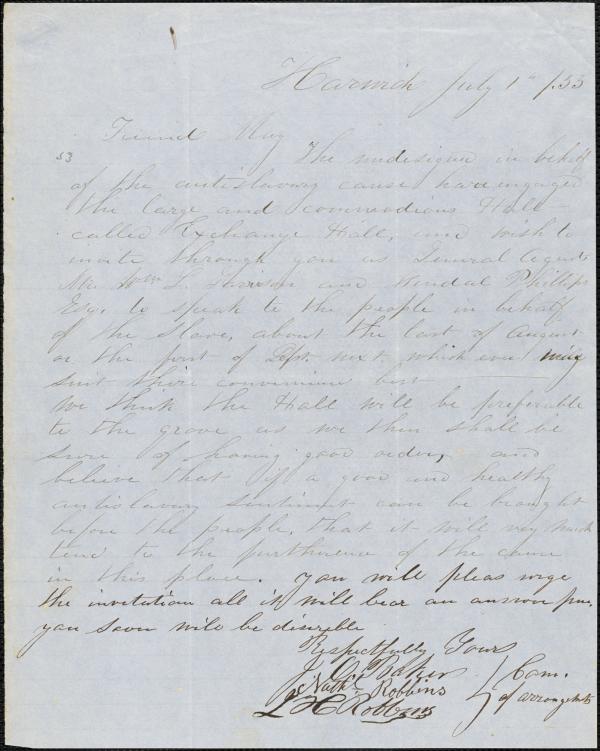 Harwich July 1st /53
Friend May
53
The undesigned in behalf
of the antislavery cause have engaged
the large and commodious Hall
called Exchange Hall, and wish to
invite through you as General Agent
Mr. Wm L. Garrison and Wendal Phillips
Esq. to speak to the people in behalf
of the Slave, about the last of August
or the first of Sept. next which ever may
suit there convenience best
We think the Hall will be preferable
to the grove as we then shall be
sure of having good order, and
believe that if a good and healthy
antislavery sentiment can be brought
before the people, that it will very much
tend to the furtherence of the cause
in this place. you will pleas urge
the invitation all it will bear an answer from
you soon will be disirible
Respectfully Yours
J. O. Baker
Nathl Robbins
L H Robbins
Com.
of arrangements